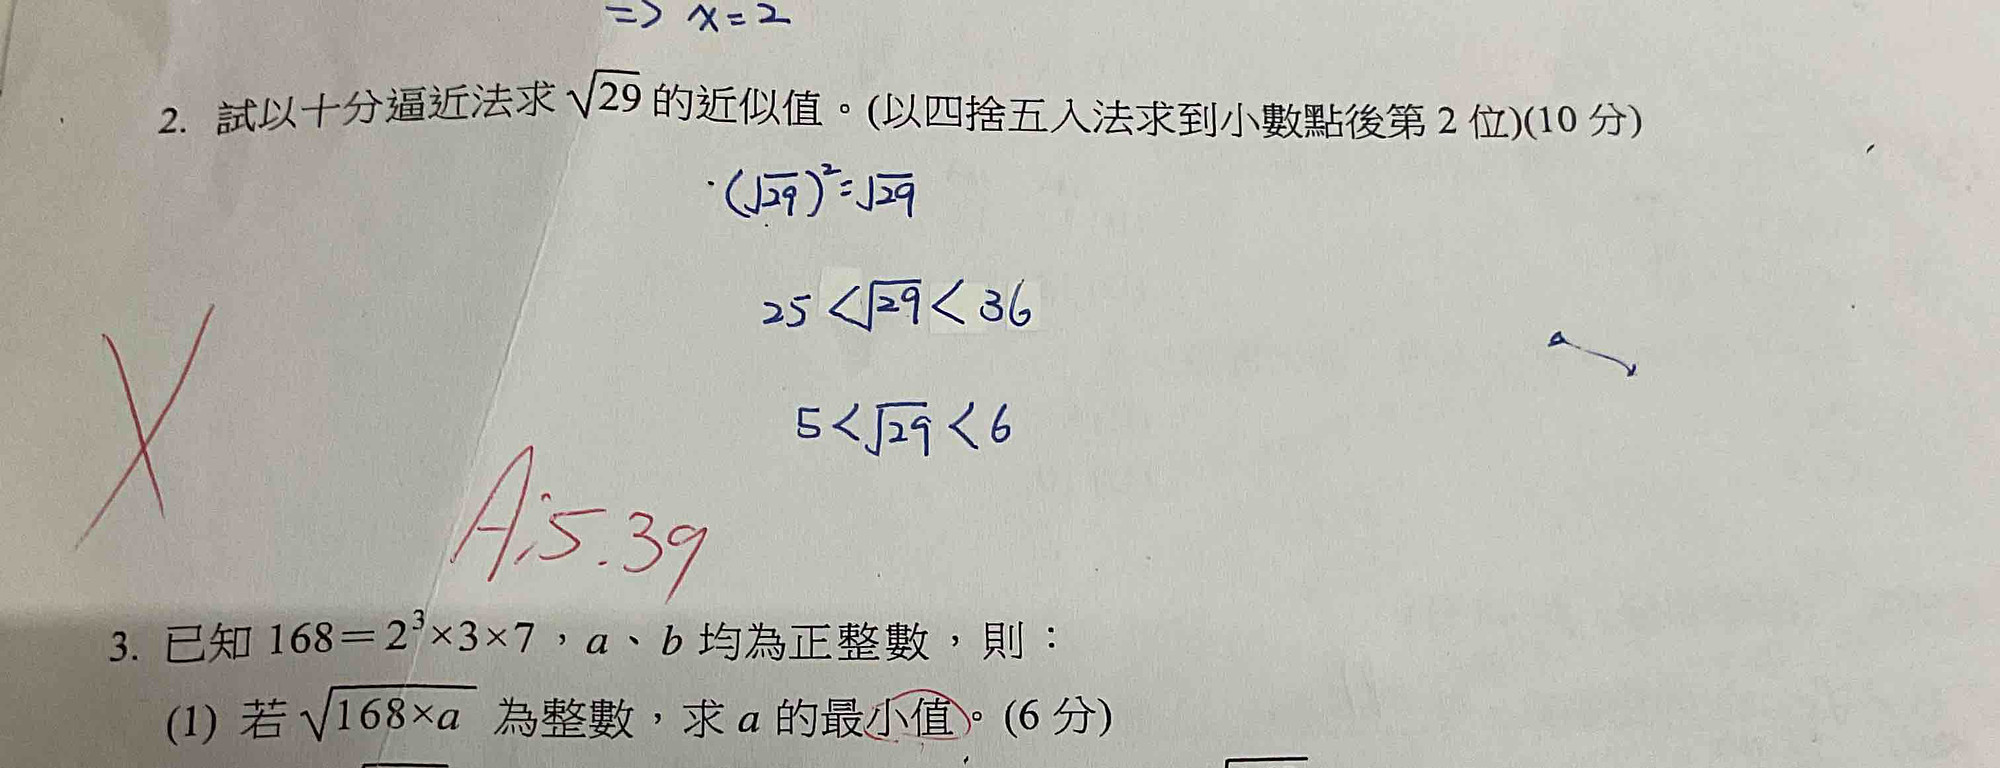 => x=2
2. 試以十分逼近法求√29的近似值。(以四捨五入法求到小數點後第2位)(10分)
(√29)²=√29
25<√29<36
5<√29<6
A:5.39
3. 已知168=2³×3×7，a、b均為正整數，則：
(1) 若√168×a 為整數，求a的最小值。(6分)